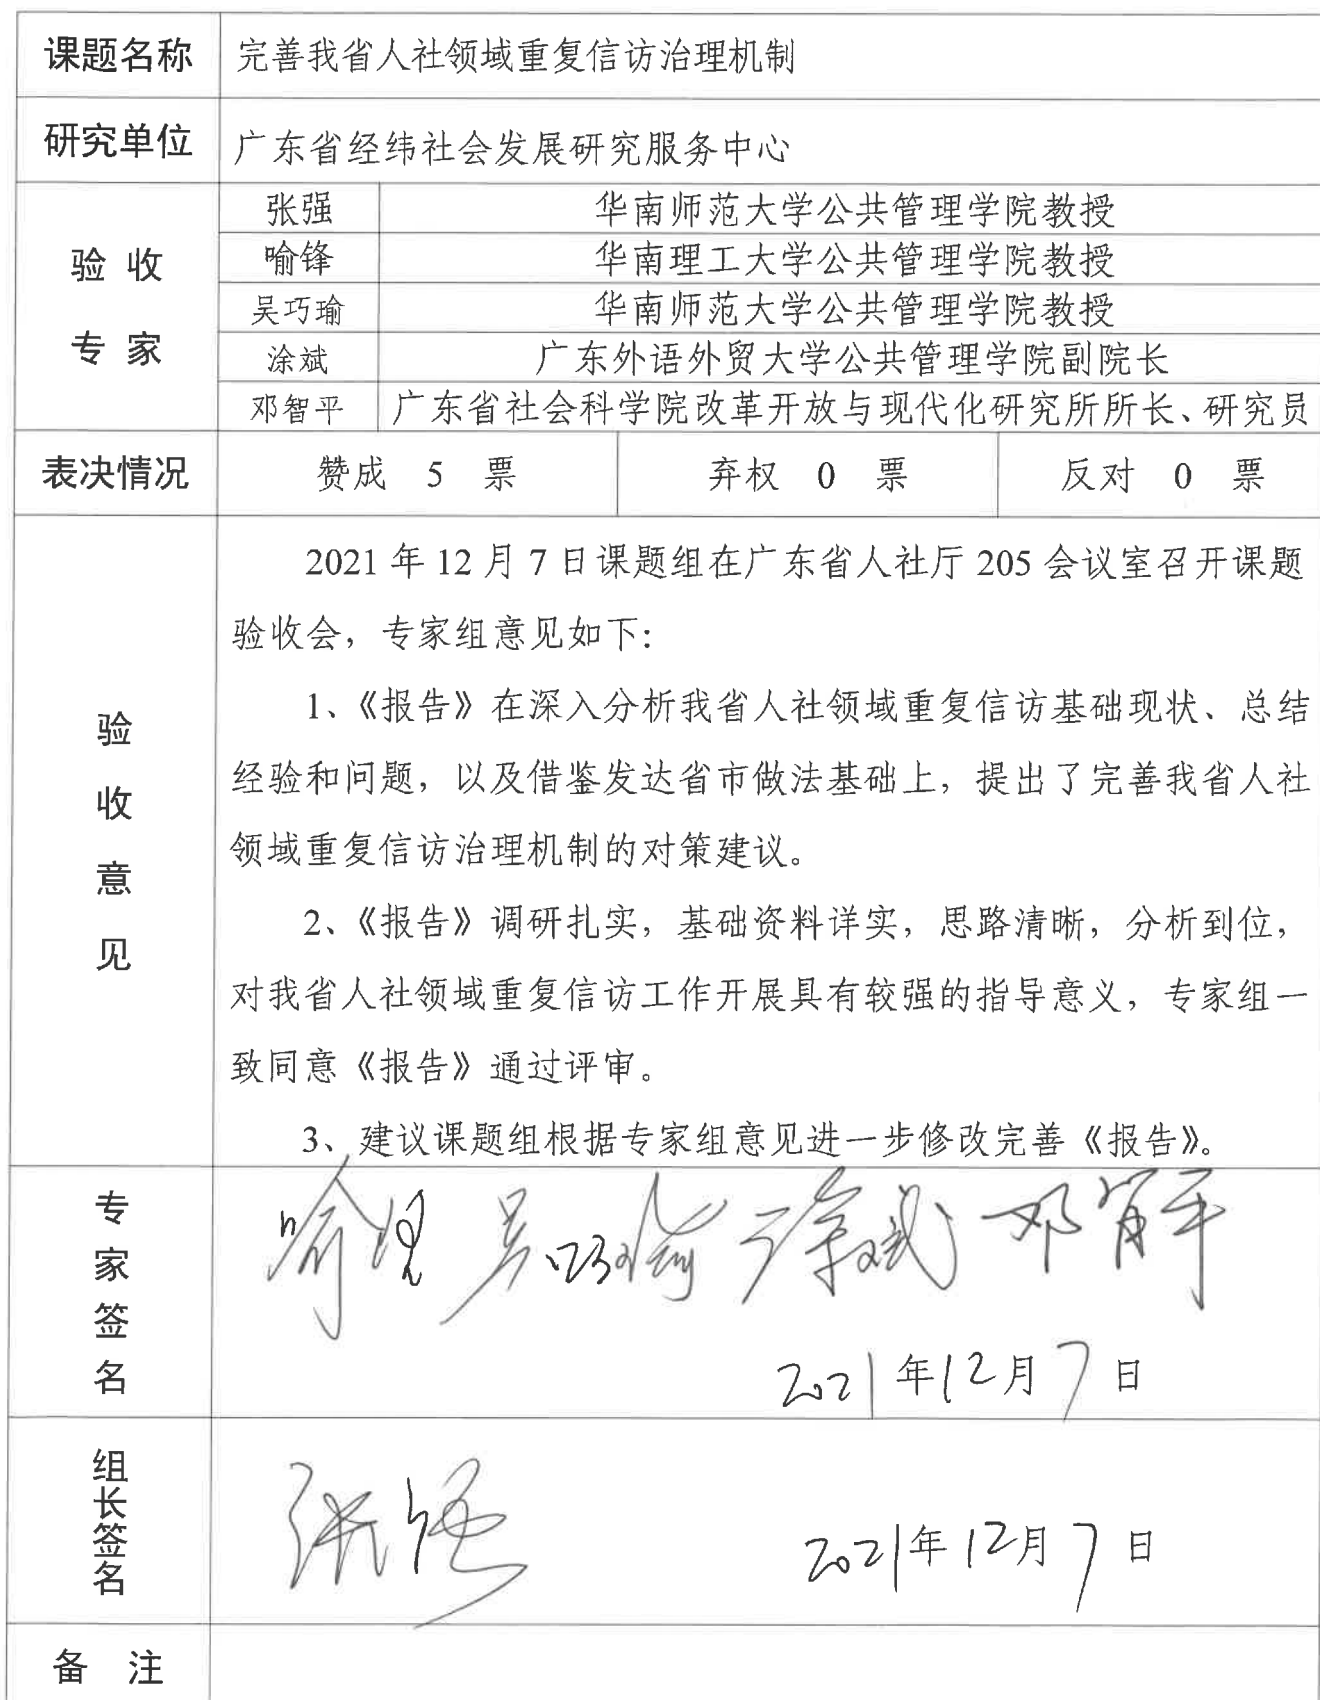 课题名称 完善我省人社领域重复信访治理机制
研究单位 广东省经纬社会发展研究服务中心
验收专家
张强 华南师范大学公共管理学院教授
喻锋 华南理工大学公共管理学院教授
吴巧瑜 华南师范大学公共管理学院教授
涂斌 广东外语外贸大学公共管理学院副院长
邓智平 广东省社会科学院改革开放与现代化研究所所长、研究员
表决情况 赞成 5 票 弃权 0 票 反对 0 票
验收意见
2021 年 12 月 7 日课题组在广东省人社厅 205 会议室召开课题
验收会，专家组意见如下：
1、《报告》在深入分析我省人社领域重复信访基础现状、总结
经验和问题，以及借鉴发达省市做法基础上，提出了完善我省人社
领域重复信访治理机制的对策建议。
2、《报告》调研扎实，基础资料详实，思路清晰，分析到位，
对我省人社领域重复信访工作开展具有较强的指导意义，专家组一
致同意《报告》通过评审。
3、建议课题组根据专家组意见进一步修改完善《报告》。
专家签名
喻锋 吴巧瑜 涂斌 邓智平
2021年12月7日
组长签名
张强
2021年12月7日
备 注